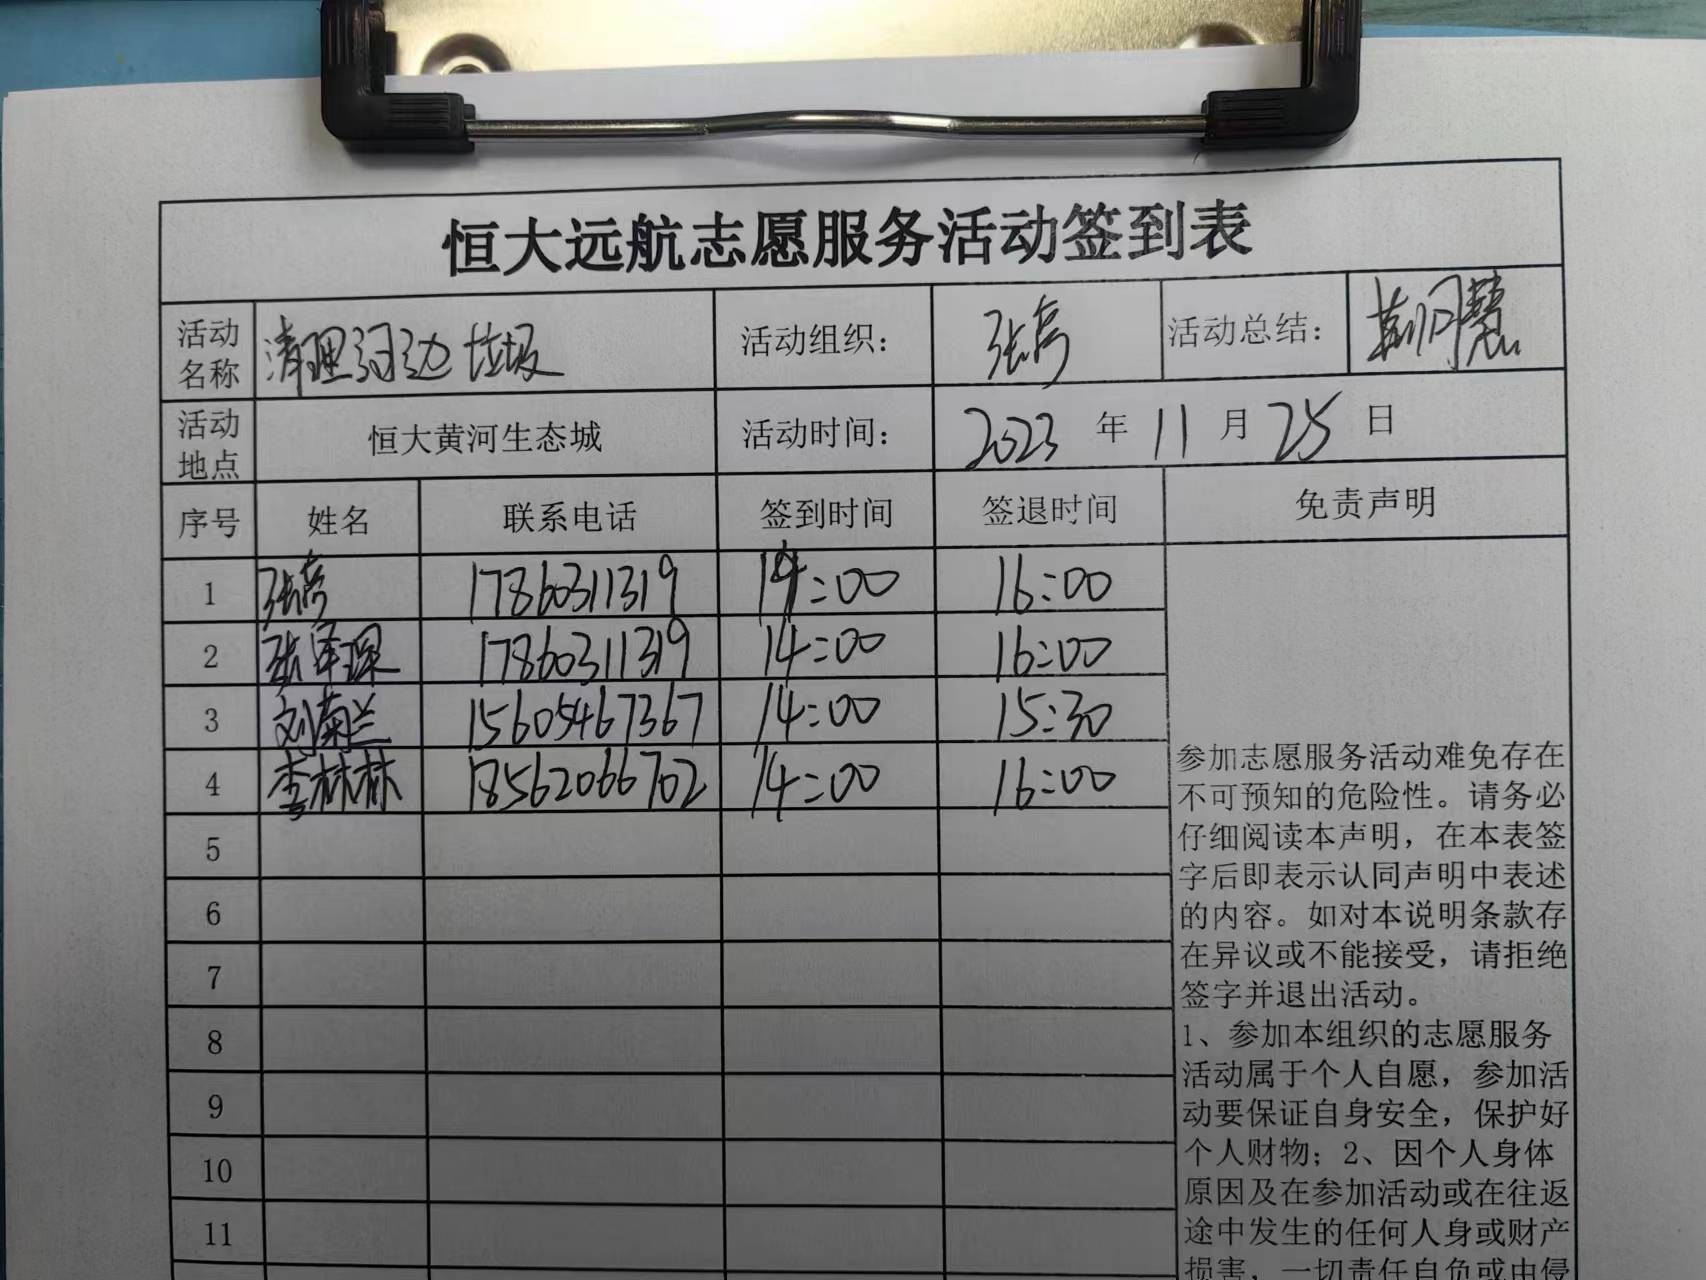 恒大远航志愿服务活动签到表
活动名称 清理河边垃圾 活动组织： 张彦 活动总结：
活动地点 恒大黄河生态城 活动时间： 2023 年 11 月 25 日
序号 姓名 联系电话 签到时间 签退时间 免责声明
1 张彦 17860311319 14:00 16:00
2 张泽琛 17860311319 14:00 16:00
3 刘菊兰 15605467367 14:00 15:30
4 李林林 18562066702 14:00 16:00
5
6
7
8
9
10
11
参加志愿服务活动难免存在
不可预知的危险性。请务必
仔细阅读本声明，在本表签
字后即表示认同声明中表述
的内容。如对本说明条款存
在异议或不能接受，请拒绝
签字并退出活动。
1、参加本组织的志愿服务
活动属于个人自愿，参加活
动要保证自身安全，保护好
个人财物；2、因个人身体
原因及在参加活动或在往返
途中发生的任何人身或财产
损害，一切责任自负或由侵